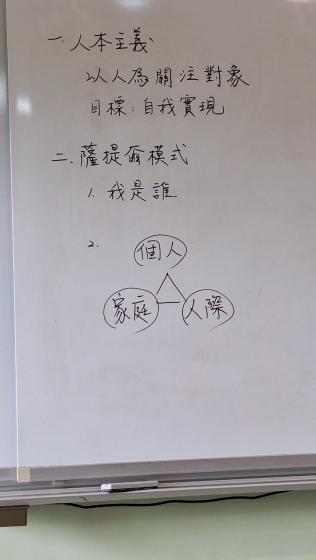 一. 人本主義
以人為關注對象
目標:自我實現
二. 薩提爾模式
1. 我是誰
2.
個人
家庭
人際